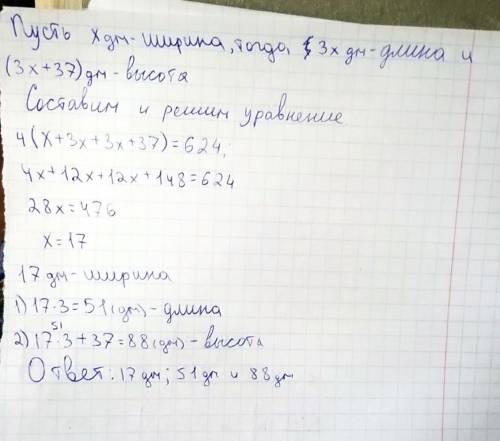 Пусть x дм-ширина, тогда 3x дм-длина и
(3x+37)дм-высота
Составим и решим уравнение
4(x+3x+3x+37)=624;
4x+12x+12x+148=624
28x=476
x=17
17 дм-ширина
1) 17·3=51(дм)-длина
51
2) 17·3+37=88(дм)-высота
Ответ: 17 дм; 51 дм и 88 дм